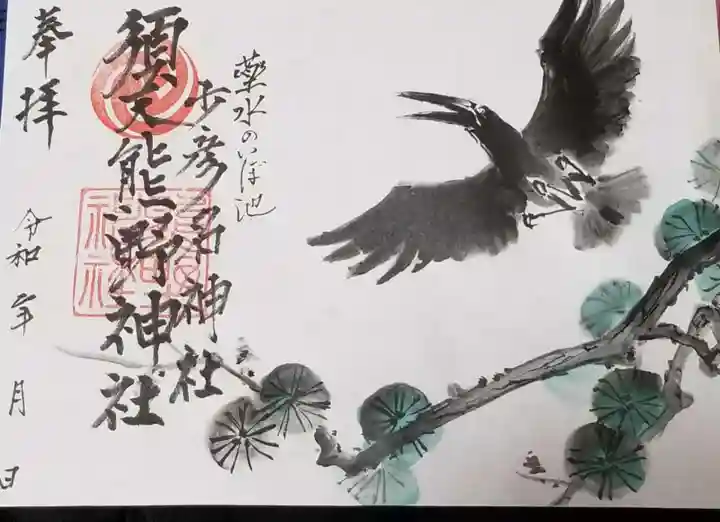 薬水のいぼ池
少彦名神社
須天熊野神社
奉拝
令和 年 月 日